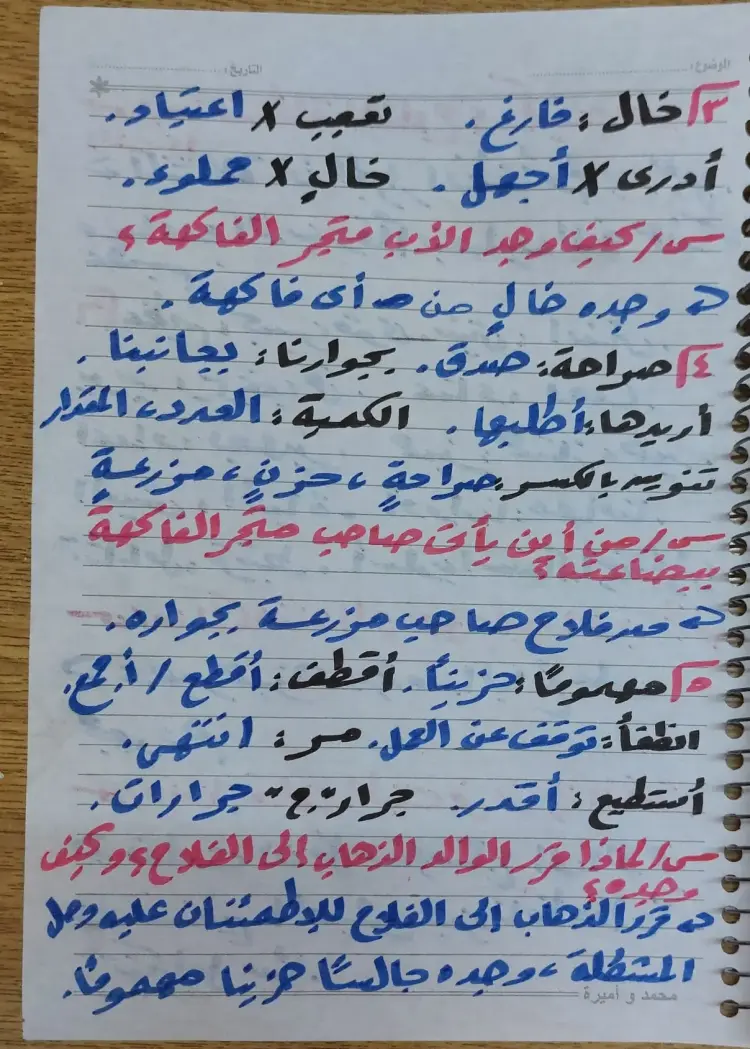 الوضوع: التاريخ:
٣ خال: فارغ. تعجب X اعتياد.
أدرى X أجهل. خالٍ X مملوء.
س/ كيف وجد الأب متجر الفاكهة؟
وجده خالٍ من أى فاكهة.
٤ صراحة: صدق. بجوارنا: بجانبنا.
أريدها: أطلبها. الكمية: العدد، المقدار
تنوين بالكسر: صراحةٍ، حزنٍ، مزرعةٍ
س/ من أين يأتى صاحب متجر الفاكهة
ببضاعته؟
من فلاح صاحب مزرعة بجواره.
٥ مهمومًا: حزينًا. أقطف: أقطع / أجمع.
انطفأ: توقف عن العمل. مر: انتهى.
أستطيع: أقدر. جرار "ج" جرارات.
س/ لماذا قرر الوالد الذهاب إلى الفلاح؟ وكيف
وجده؟
قرر الذهاب إلى الفلاح للاطمئنان عليه وحل
المشكلة، وجده جالسًا حزينا مهمومًا.
محمد و أميرة